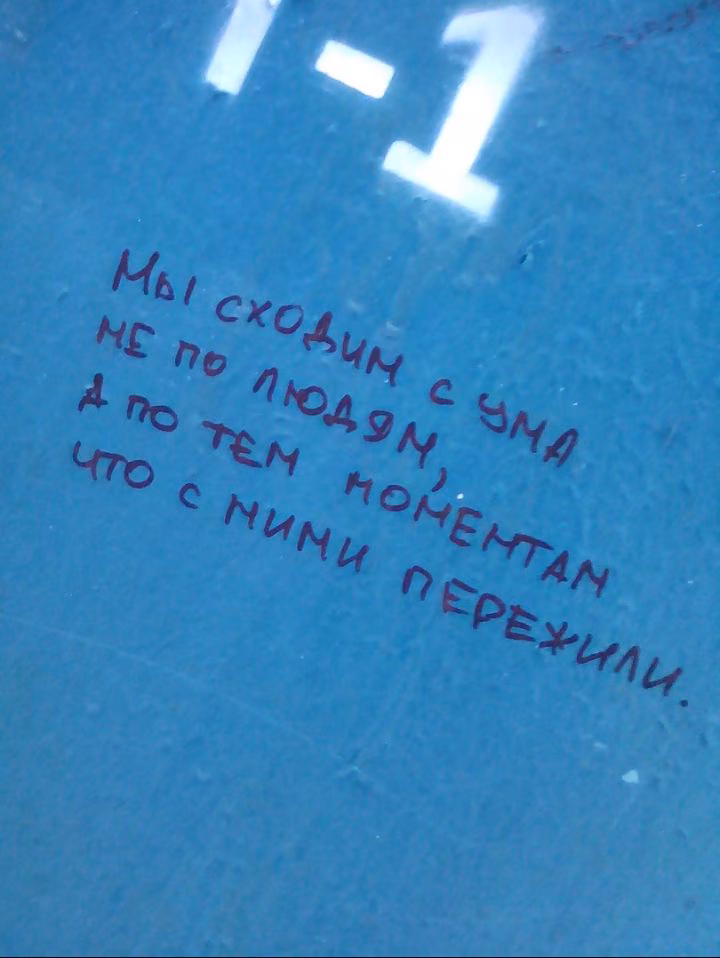 1-1
Мы сходим с ума
не по людям,
а по тем моментам
что с ними пережили.